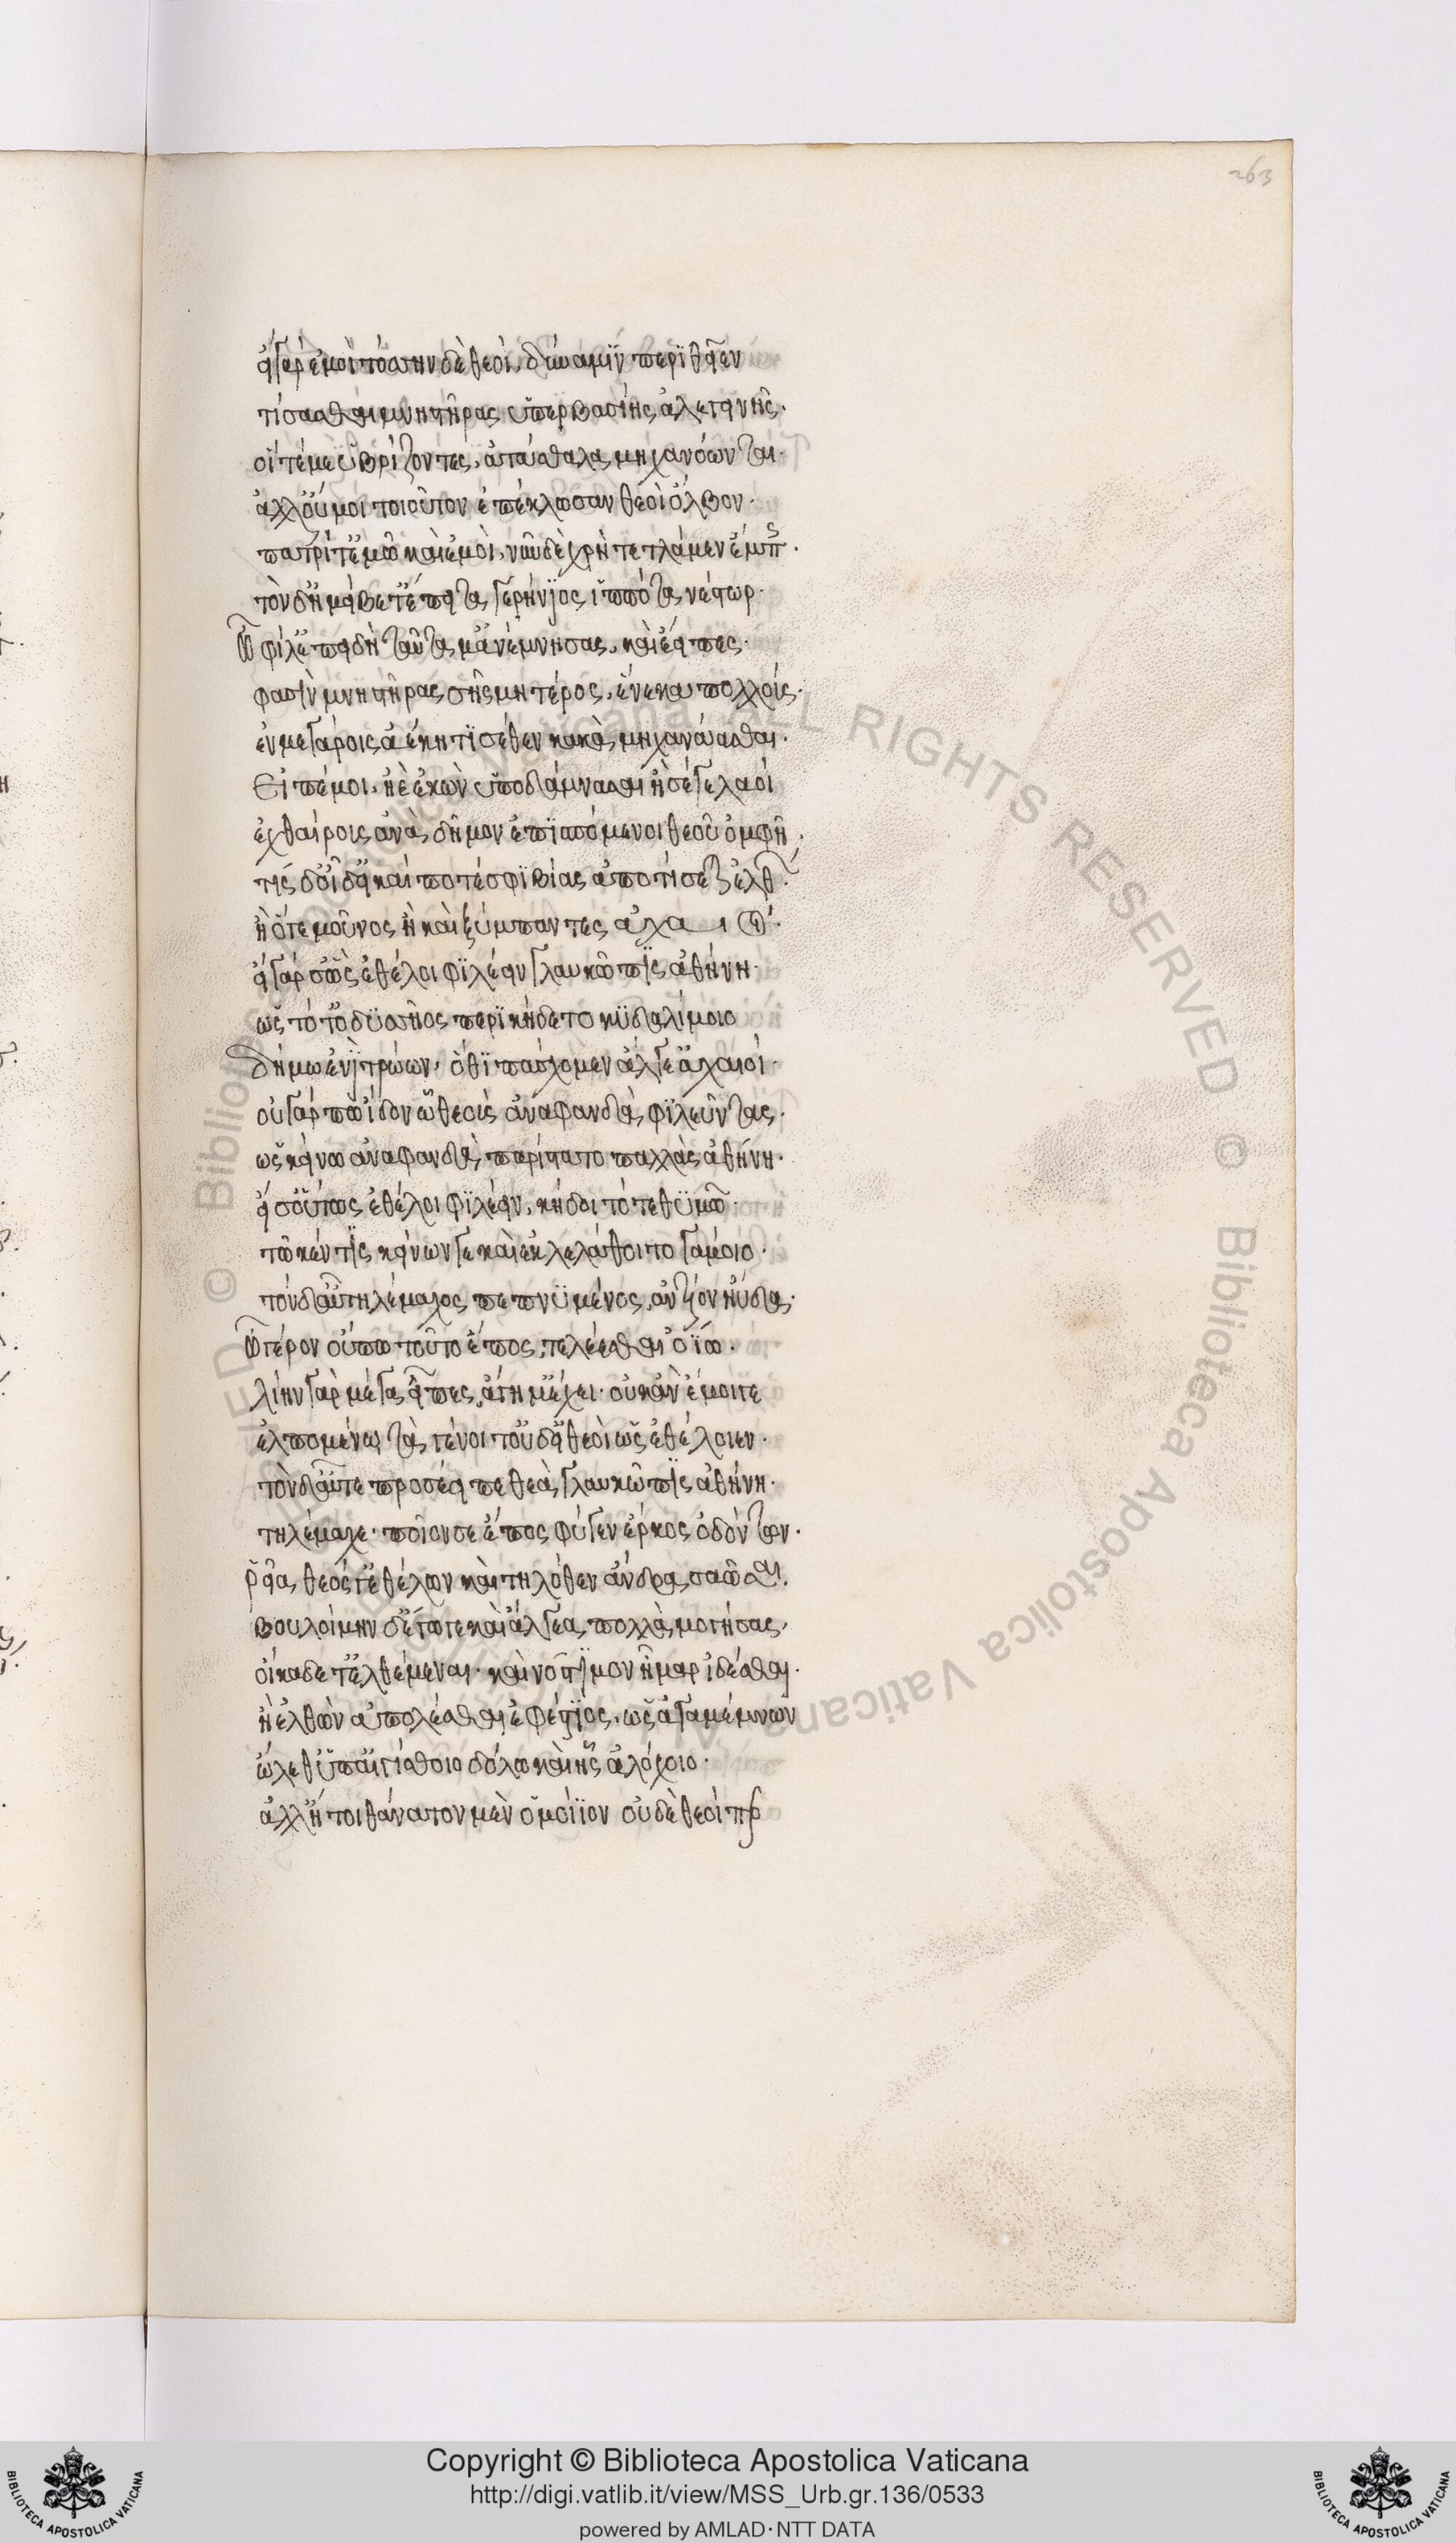 263
εἰ γὰρ ἐμοὶ τόσσην δὲ θεοὶ, δύναμϊν περϊθεῖεν
τίσασθαι μνηστῆρας ὑπερβασίης ἀλεγεινῆς·
οἵ τέ με ὑβρίζοντες, ἀτάσθαλα μηχανόωνται·
ἀλλ' οὔ μοι τοιοῦτον ἐπέκλωσαν θεοὶ ὄλβον·
πατρί τ' ἐμῶ καὶ ἐμοὶ, νῦν δὲ χρὴ τετλάμεν ἔμπης·
τὸν δ' ἠμείβετ' ἔπειτα γερήνϊος ἱππότα νέστωρ·
Ὦ φίλ' ἐπειδὴ ταῦτά μ' ἀνέμνησας, καὶ ἔειπες·
φασὶν μνηστῆρας σῆς μητέρος, εἵνεκα πολλοὺς·
ἐν μεγάροις ἀέκητϊ σέθεν κακὰ μηχανάασθαι·
Εἰπέ μοι, ἠὲ ἑκὼν ὑποδάμνασαι ἦ σέ γε λαοὶ
ἐχθαίροις ἀνὰ δῆμον ἐπϊσπόμενοι θεοῦ ὀμφῆ·
τίς δ' οἶδ' εἴ κέ ποτέ σφϊ βίας ἀποτίσεϊ ἐλθὼν·
ἢ ὅτε μοῦνος ἢ καὶ ξύμπαντες ἀχαιοὶ·
εἰ γάρ σ' ὣς ἐθέλοι φϊλέειν γλαυκῶπϊς ἀθήνη·
ὡς τότ' ὀδϋσσῆος περϊκήδετο κϋδαλίμοιο
δήμω ἐνὶ τρώων, ὅθϊ πάσχομεν ἄλγε' ἀχαιοί·
οὐ γάρ πω ἴδον ὧδε θεοὺς ἀναφανδὰ φϊλεῦντας·
ὡς κείνω ἀναφανδὰ παρίστατο παλλὰς ἀθήνη·
εἴ σ' οὕτως ἐθέλοι φϊλέειν, κήδοιτό τε θϋμῶ·
τῶ κέν τϊς κείνων γε καὶ ἐκλελάθοιτο γάμοιο·
τὸν δ' αὖ τηλέμαχος πεπνϋμένος ἀντίον ηὔδα·
Ὦ γέρον οὔπω τοῦτο ἔπος τελέεσθαι ὀΐω·
λίην γὰρ μέγα εἶπες, ἄγη μ' ἔχει· οὐκ ἂν ἔμοιγε
ἐλπομένω τὰ γένοιτ' οὐδ' εἰ θεοὶ ὣς ἐθέλοιεν·
τὸν δ' αὖτε προσέειπε θεὰ γλαυκῶπϊς ἀθήνη·
τηλέμαχε· ποῖόν σε ἔπος φύγεν ἕρκος ὀδόντων·
ῥεῖα θεός γ' ἐθέλων καὶ τηλόθεν ἄνδρα σαῶσαι.
βουλοίμην δ' ἔγωγε καὶ ἄλγεα πολλὰ μογήσας,
οἴκαδέ τ' ἐλθέμεναι· καὶ νόστϊμον ἦμαρ ἰδέσθαι·
ἢ ἐλθὼν ἀπολέσθαι ἐφέστϊος, ὡς ἀγαμέμνων
ὤλεθ' ὑπ' αἰγίσθοιο δόλω καὶ ἧς ἀλόχοιο·
ἀλλ' ἤτοι θάνατον μὲν ὁμοίϊον οὐδὲ θεοί περ
Copyright © Biblioteca Apostolica Vaticana
http://digi.vatlib.it/view/MSS_Urb.gr.136/0533
powered by AMLAD·NTT DATA